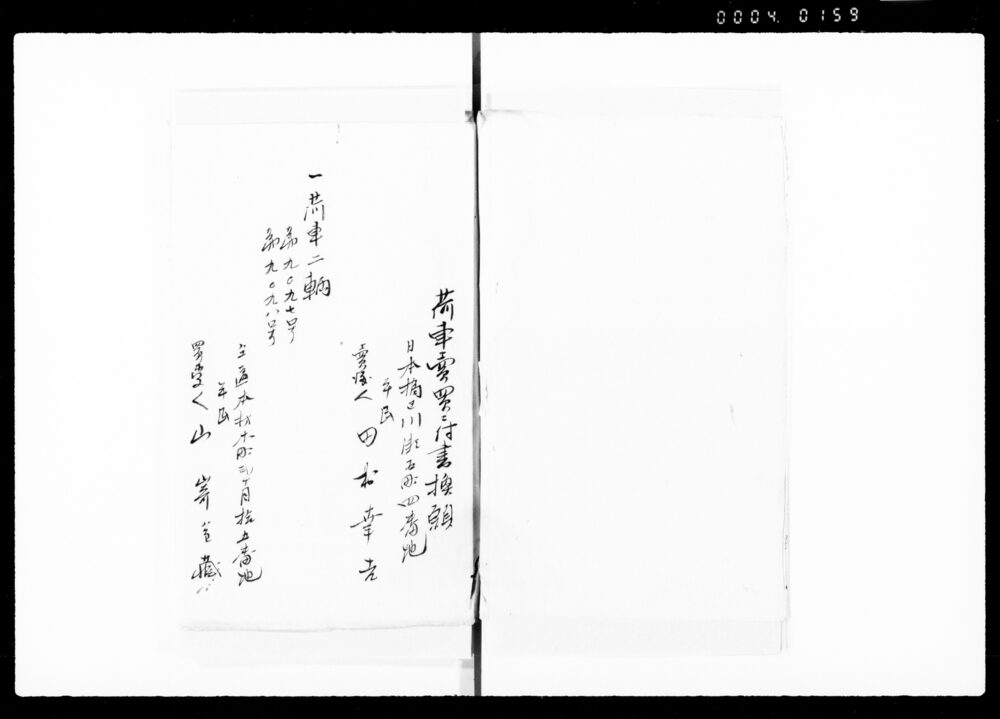 0004. 0159
荷車賣買ニ付書換願
日本橋區川瀬石町四番地
平民
賣渡人 田村幸吉
一荷車二輌
第九〇九七号
第九〇九八号
仝區本材木町三丁目拾五番地
平民
買受人 山嵜